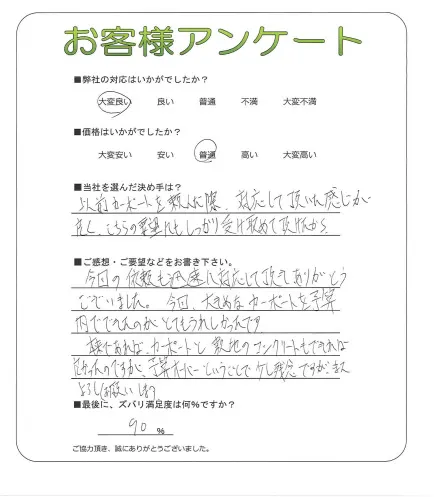 お客様アンケート
■弊社の対応はいかがでしたか？
大変良い 良い 普通 不満 大変不満
■価格はいかがでしたか？
大変安い 安い 普通 高い 大変高い
■当社を選んだ決め手は？
以前カーポートを頼んだ際、対応して頂いた感じが
良く、こちらの要望にもしっかり受け止めて頂けたから。
■ご感想・ご要望などをお書き下さい。
今回の依頼も迅速に対応して頂きありがとう
ございました。今回、大きめなカーポートを予算
内でできたのがとてもうれしかったです
であれば、カーポートと敷地のコンクリートもできれば
よかったのですが、予算オーバーということで少し残念ですが、また
よろしくお願いします
■最後に、ズバリ満足度は何％ですか？
90 ％
ご協力頂き、誠にありがとうございました。